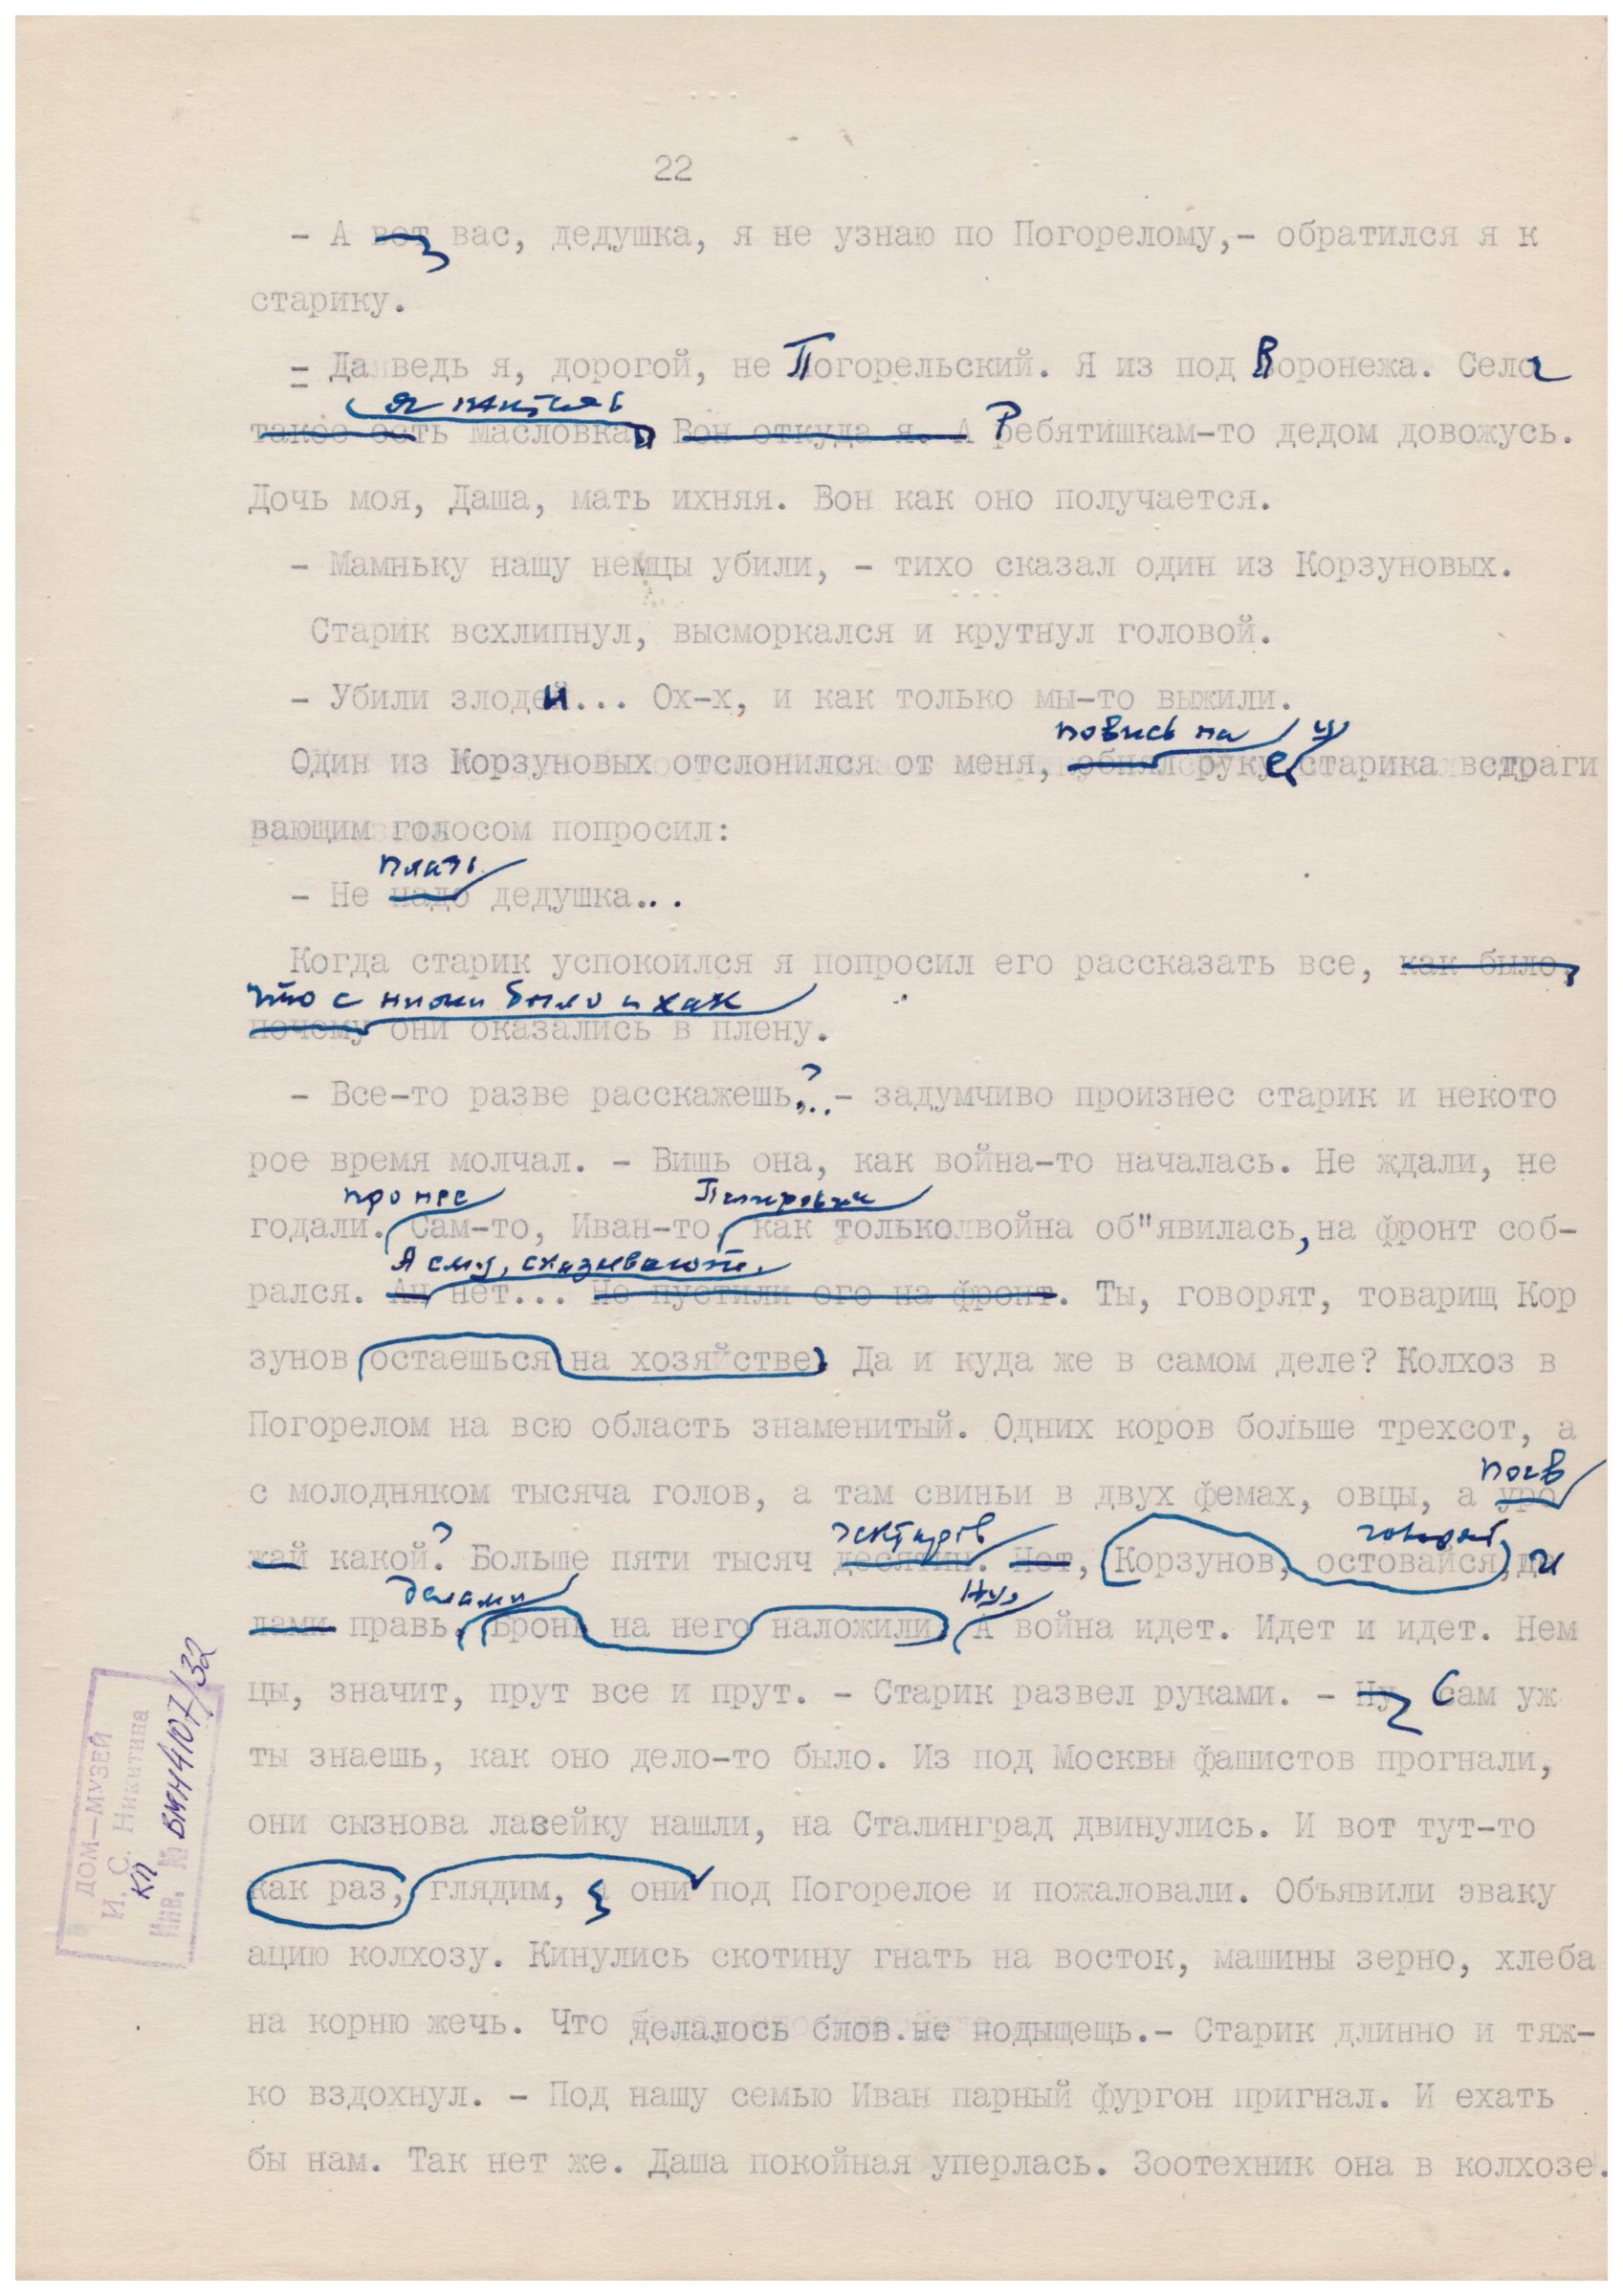 22
- А вот вас, дедушка, я не узнаю по Погорелому,- обратился я к
старику.
- Да ведь я, дорогой, не Погорельский. Я из под Воронежа. Села
такое есть Масловка, Вон откуда я. А Ребятишкам-то дедом довожусь.
Дочь моя, Даша, мать ихняя. Вон как оно получается.
- Мамньку нашу немцы убили, - тихо сказал один из Корзуновых.
Старик всхлипнул, высморкался и крутнул головой.
- Убили злодеи... Ох-х, и как только мы-то выжили.
повись на
Один из Корзуновых отслонился от меня, обнял руке старика вздраги
вающим голосом попросил:
плачь
- Не надо дедушка...
Когда старик успокоился я попросил его рассказать все, как было,
что с ними было и как
почему они оказались в плену.
- Все-то разве расскажешь?.. - задумчиво произнес старик и некото
рое время молчал. - Вишь она, как война-то началась. Не ждали, не
годали. Сам-то, Иван-то, как только война об"явилась, на фронт соб-
А ему, сказывают,
рался. Ан нет... Не пустили его на фронт. Ты, говорят, товарищ Кор
зунов остаешься на хозяйстве. Да и куда же в самом деле? Колхоз в
Погорелом на всю область знаменитый. Одних коров больше трехсот, а
посев
с молодняком тысяча голов, а там свиньи в двух фемах, овцы, а уро
гектаров говорят
жай какой? Больше пяти тысяч десятин. Нет, Корзунов, остовайся, да и
делами Ну,
лами правь. Бронь на него наложили. А война идет. Идет и идет. Нем
цы, значит, прут все и прут. - Старик развел руками. - Ну, Сам уж
ты знаешь, как оно дело-то было. Из под Москвы фашистов прогнали,
они сызнова лазейку нашли, на Сталинград двинулись. И вот тут-то
как раз, глядим, а они под Погорелое и пожаловали. Объявили эваку
ацию колхозу. Кинулись скотину гнать на восток, машины зерно, хлеба
на корню жечь. Что делалось слов.не подыщещь.- Старик длинно и тяж-
ко вздохнул. - Под нашу семью Иван парный фургон пригнал. И ехать
бы нам. Так нет же. Даша покойная уперлась. Зоотехник она в колхозе.
ДОМ-МУЗЕЙ
И. С. Никитина
КП
Инв. № ВМН4107/32